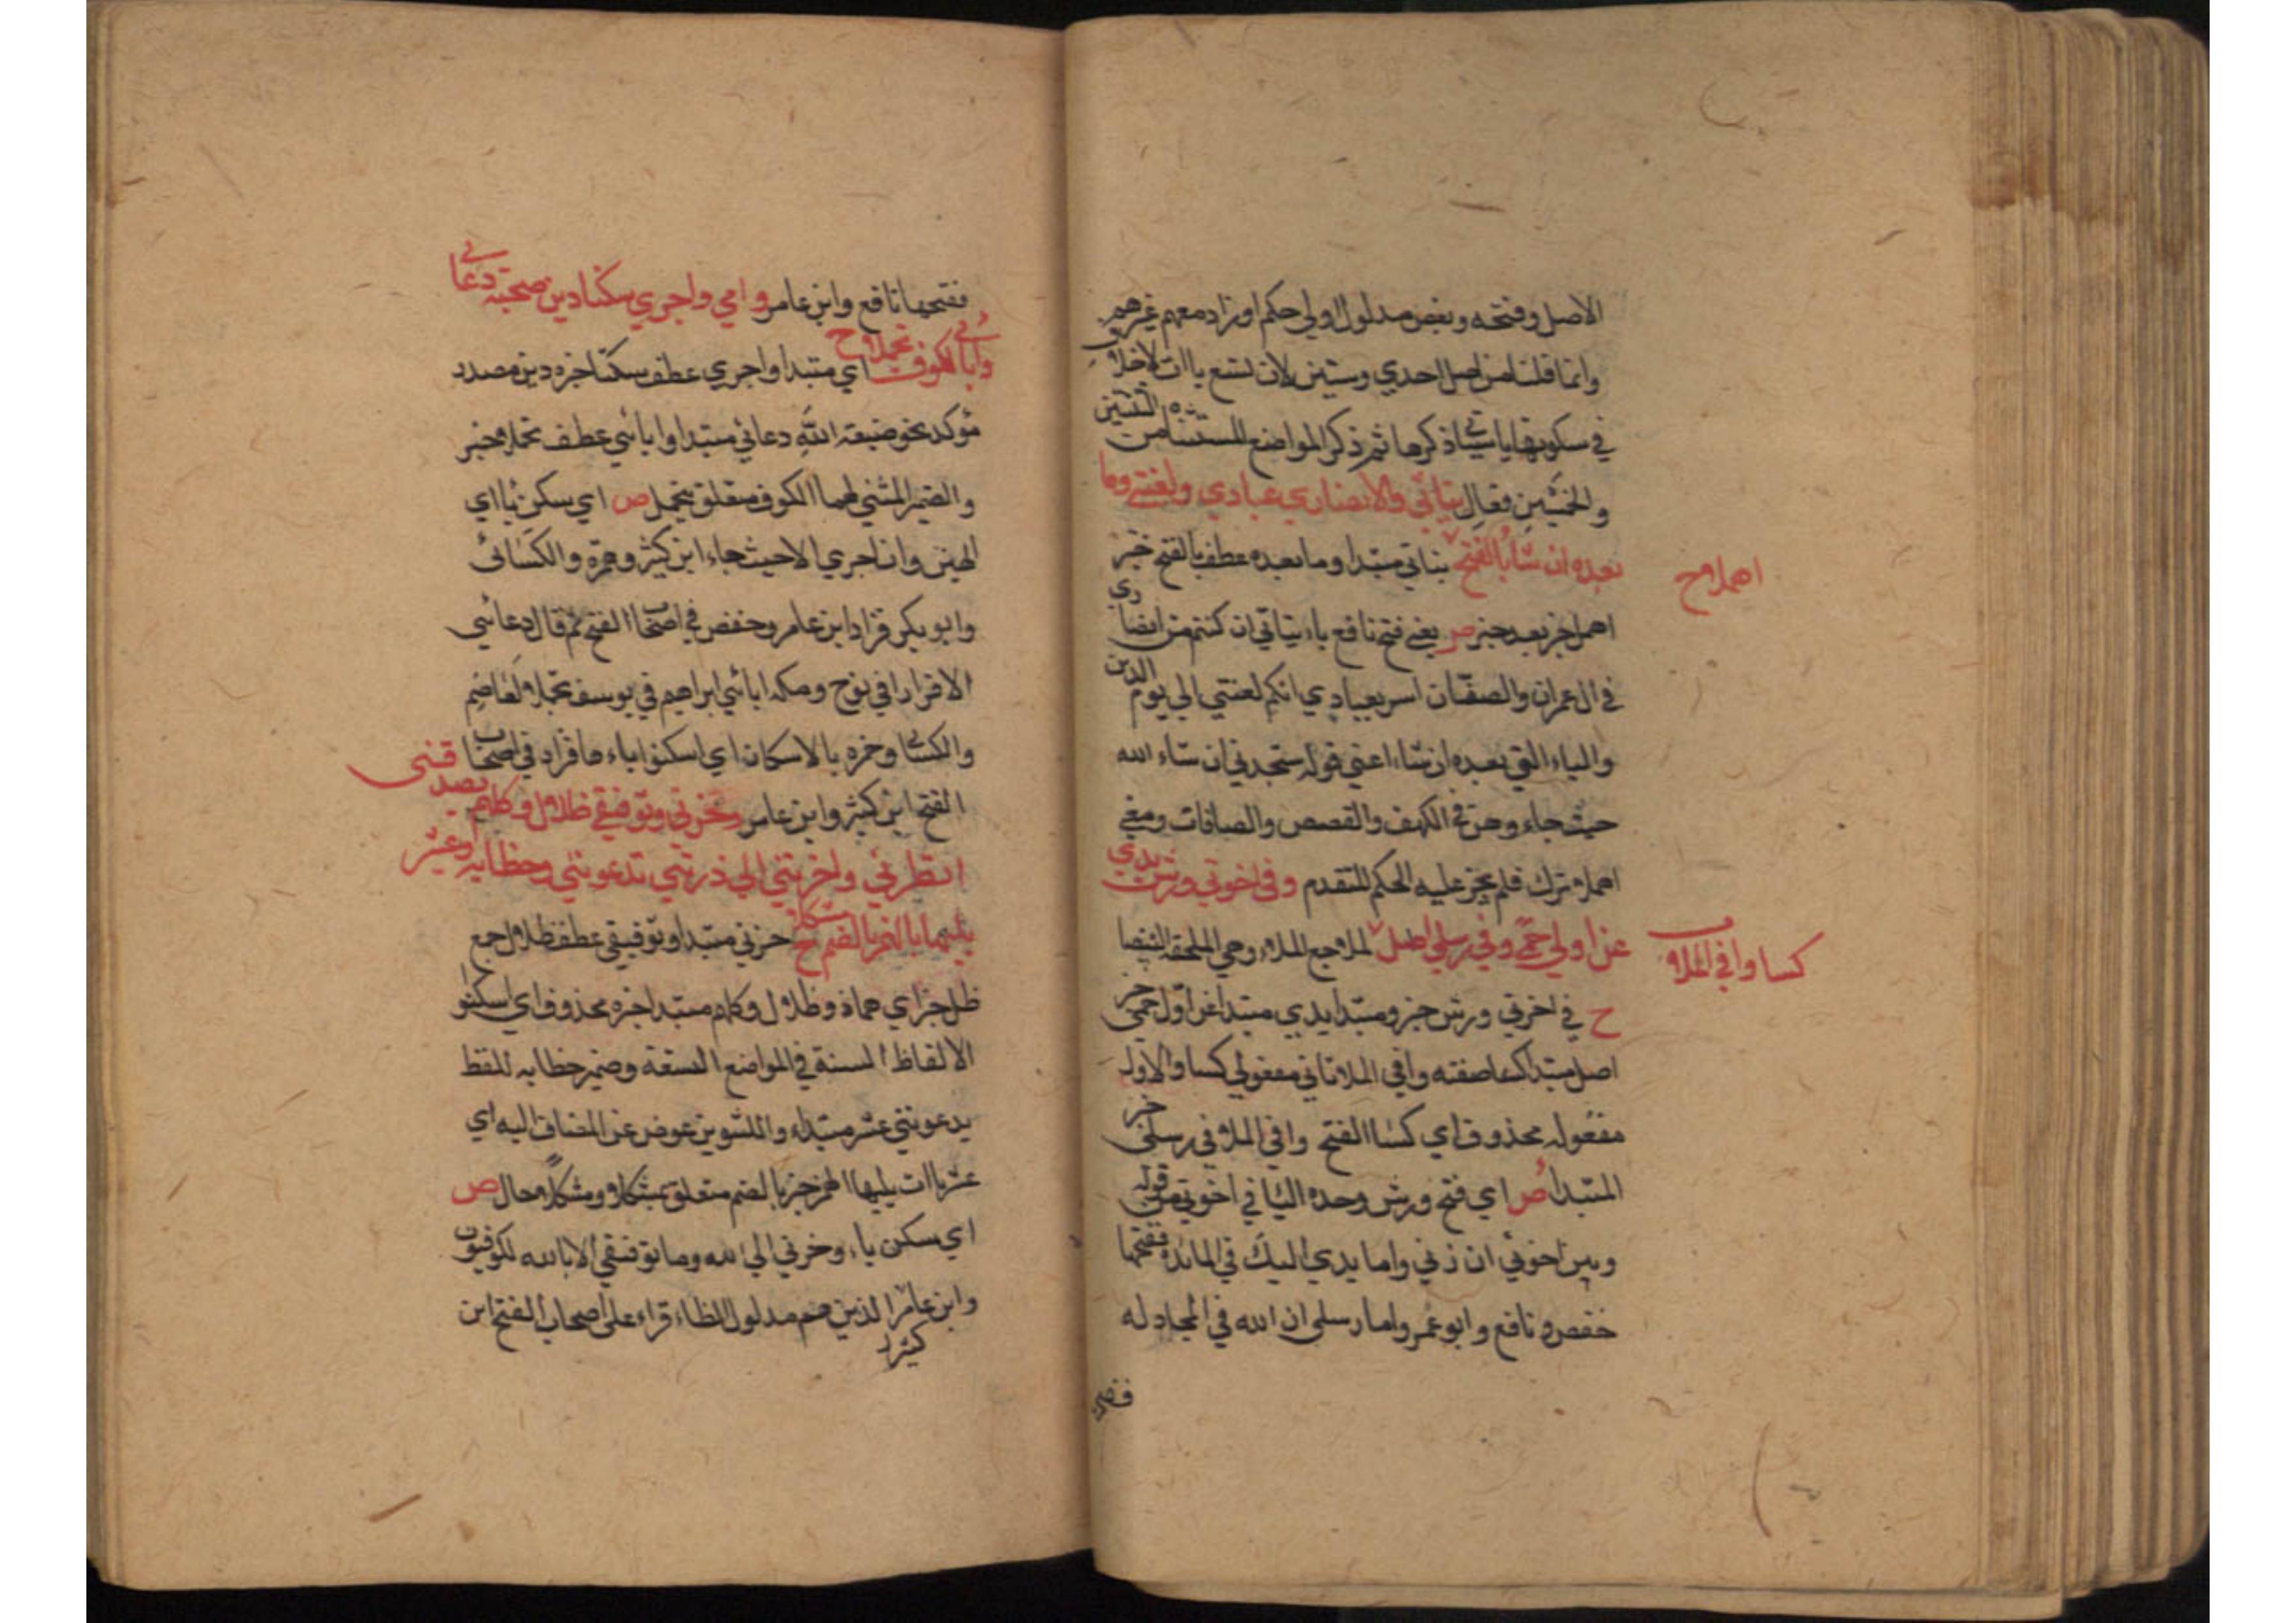 الاصل وفتحه وبعض مدلول اولي حكم او زاد معهم غيرهم
وانما قلنا من اصل احدي وستين لان تسع ياات لا خلاف
في سكونها ياتي ذكرها ثم ذكر المواضع المستثناه من الثنتين
والخمسين فقال بناتي والانصاري عبادي ولعنتي وما
بعده ان شا بالفتح بناتي مبتدا وما بعده عطف بالفتح خبر
اهملا وح
اهمل خبر بعد خبر ص يعني فتح نافع ياء بناتي ان كنتم من انصاري
في ال عمران والصف ان اسر بعبادي انكم لعنتي الي يوم الدين
والياء التي بعده ان شاء اعني قوله ستجدني ان شاء الله
حيث جاء وهن في الكهف والقصص والصافات ومعني
اهملا ترك فلم يجز عليه الحكم المتقدم وفي اخوتي ورش يدي
عن اولي حمي وفي رسلي اصل الملا جمع الملاء وهي الملحفة البيضا
كسا وافي الملا
ح في اخوتي ورش خبر ومبتدا يدي مبتدا عن اولي حمي خبر
اصل مبتدا كسا صفته وافي الملا ثاني مفعولي كسا والاول
مفعوله محذوف اي كسا الفتح وافي الملا في رسلي خبر
المبتدا ص اي فتح ورش وحده اليا في اخوتي من قوله
وبين اخوتي ان ذني واما يدي اليك في المائدة ففتحها
حفص ونافع وابو عمر واما رسلي ان الله في المجادله
ففتحها
ففتحها نافع وابن عامر وامي واجري سكنا دين صحبة دعائي
وابائي لكوف تجملا ح امي مبتدا واجري عطف سكنا خبره دين مصدر
مؤكد نحو صبغة الله دعائي مبتدا وابائي عطف تجملا خبر
والضمير المثني لهما الكوف متعلق بتجمل ص اي سكن يا امي
الهين وان اجري الا حيث جاء ابن كثير وحمزة والكسائي
وابو بكر فزاد ابن عامر وحفص في اصحاب الفتح ثم قال دعائي
الا فرارا في نوح وملة ابائي ابراهيم في يوسف تجملا لعاصم
والكسائي وحمزه بالاسكان اي اسكنوا ياء ما فزاد في اصحاب
الفتح ابن كثير وابن عامر وحزني وتوفيقي ظلال وكلهم يصدقني
انظرني واخرتني الي ذريتي تدعونني وخطابه وعشر
يليها بالهمز بالضم مشكلا ح حزني مبتدا وتوفيقي عطف ظلال جمع
ظل خبر اي حماة وظلال وكلهم مبتدا خبره محذوف اي اسكنوا
الالفاظ الستة في المواضع التسعة وضمير خطابه للفظ
يدعونني عشر مبتداء والتنوين عوض عن المضاف اليه اي
عشر ياات يليها الهمز خبر بالضم متعلق بمشكلا ومشكلا حال ص
اي سكن ياء وحزني الي الله وما توفيقي الا بالله لكوفيون
وابن عامر الذين هم مدلول الظاء قراء علي اصحاب الفتح ابن
كثير